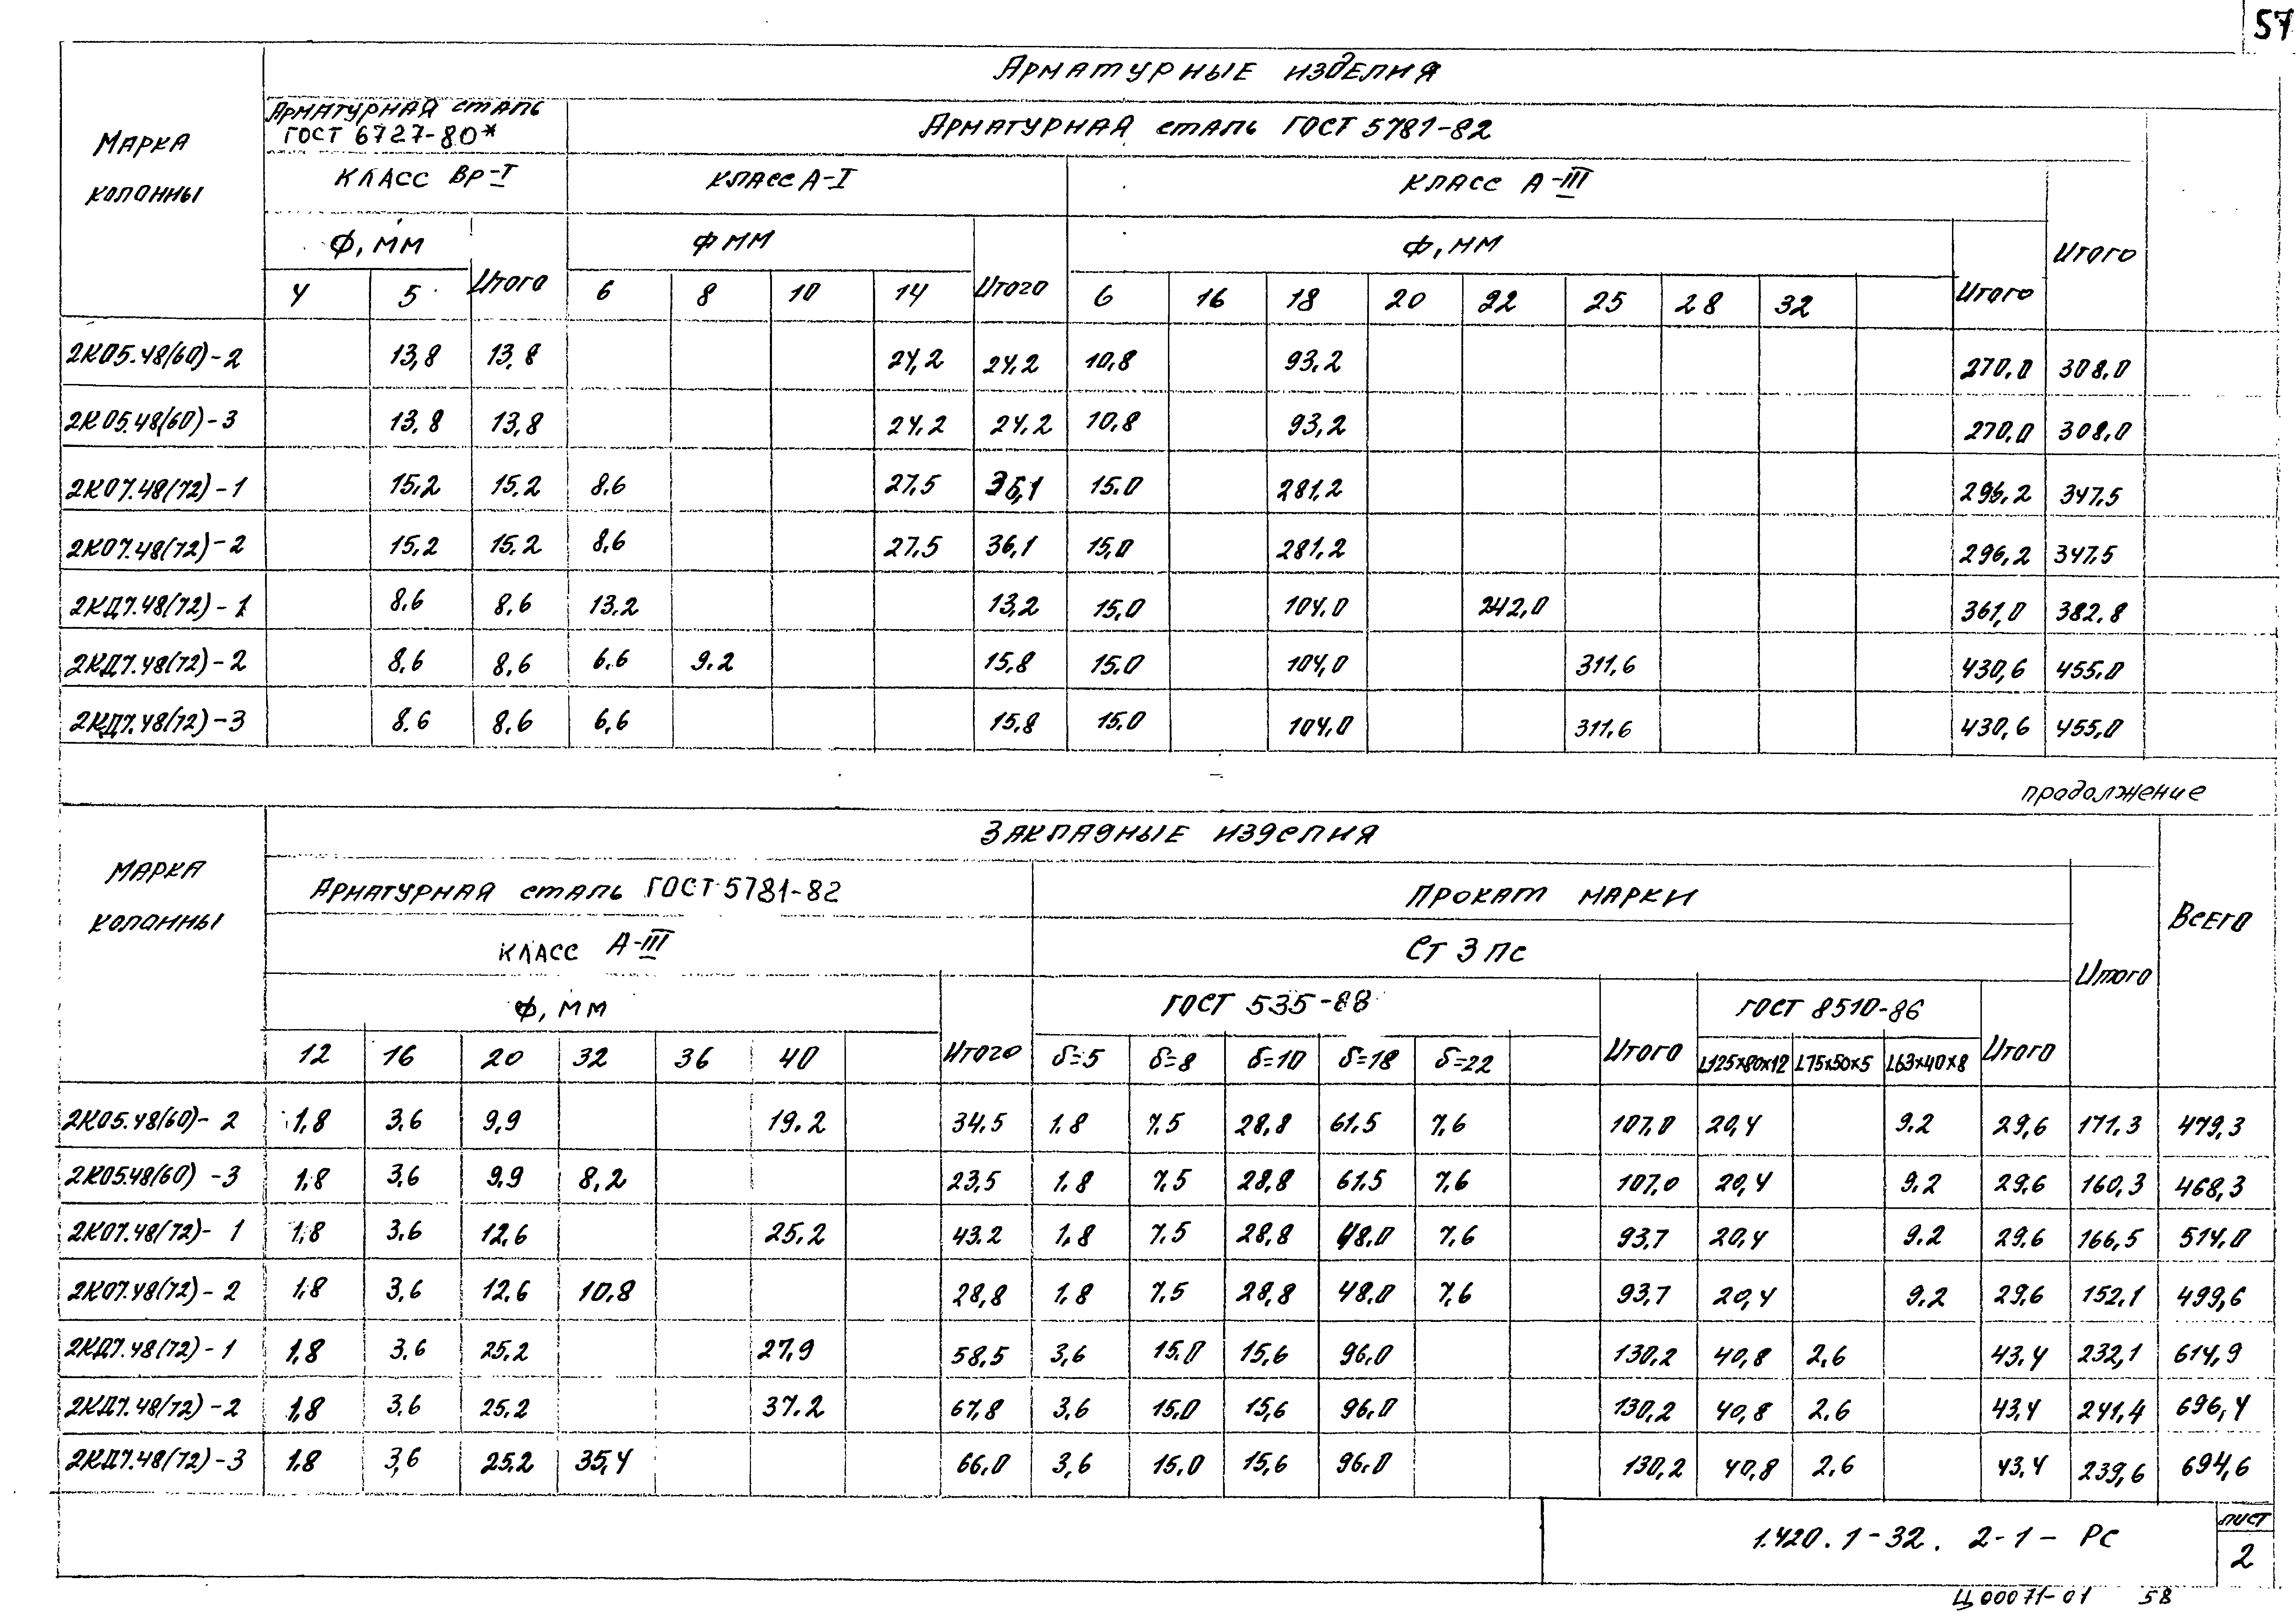 57
Арматурные изделия
Марка колонны
Арматурная сталь ГОСТ 6727-80*
Арматурная сталь ГОСТ 5781-82
Класс Вр-I
Класс А-I
Класс А-III
Итого
Ф, мм
Итого
Ф мм
Итого
Ф, мм
Итого
4 5 6 8 10 14 6 16 18 20 22 25 28 32
2К05.48(60)-2 13,8 13,8 24,2 24,2 10,8 93,2 270,0 308,0
2К05.48(60)-3 13,8 13,8 24,2 24,2 10,8 93,2 270,0 308,0
2К07.48(72)-1 15,2 15,2 8,6 27,5 36,1 15,0 281,2 296,2 347,5
2К07.48(72)-2 15,2 15,2 8,6 27,5 36,1 15,0 281,2 296,2 347,5
2КД7.48(72)-1 8,6 8,6 13,2 13,2 15,0 104,0 242,0 361,0 382,8
2КД7.48(72)-2 8,6 8,6 6,6 9,2 15,8 15,0 104,0 311,6 430,6 455,0
2КД7.48(72)-3 8,6 8,6 6,6 15,8 15,0 104,0 311,6 430,6 455,0
продолжение
Закладные изделия
Марка колонны
Арматурная сталь ГОСТ 5781-82
Прокат марки
Всего
Класс А-III
Ст 3 пс
Итого
Ф, мм
Итого
ГОСТ 535-88
Итого
ГОСТ 8510-86
Итого
12 16 20 32 36 40 δ=5 δ=8 δ=10 δ=18 δ=22 L125х80х12 L75х50х5 L63х40х8
2К05.48(60)-2 1,8 3,6 9,9 19,2 34,5 1,8 7,5 28,8 61,5 7,6 107,0 20,4 9,2 29,6 171,3 479,3
2К05.48(60)-3 1,8 3,6 9,9 8,2 23,5 1,8 7,5 28,8 61,5 7,6 107,0 20,4 9,2 29,6 160,3 468,3
2К07.48(72)-1 1,8 3,6 12,6 25,2 43,2 1,8 7,5 28,8 48,0 7,6 93,7 20,4 9,2 29,6 166,5 514,0
2К07.48(72)-2 1,8 3,6 12,6 10,8 28,8 1,8 7,5 28,8 48,0 7,6 93,7 20,4 9,2 29,6 152,1 499,6
2КД7.48(72)-1 1,8 3,6 25,2 27,9 58,5 3,6 15,0 15,6 96,0 130,2 40,8 2,6 43,4 232,1 614,9
2КД7.48(72)-2 1,8 3,6 25,2 37,2 67,8 3,6 15,0 15,6 96,0 130,2 40,8 2,6 43,4 241,4 696,4
2КД7.48(72)-3 1,8 3,6 25,2 35,4 66,0 3,6 15,0 15,6 96,0 130,2 40,8 2,6 43,4 239,6 694,6
1.420.1-32. 2-1-РС
лист
2
Ц00071-01 58